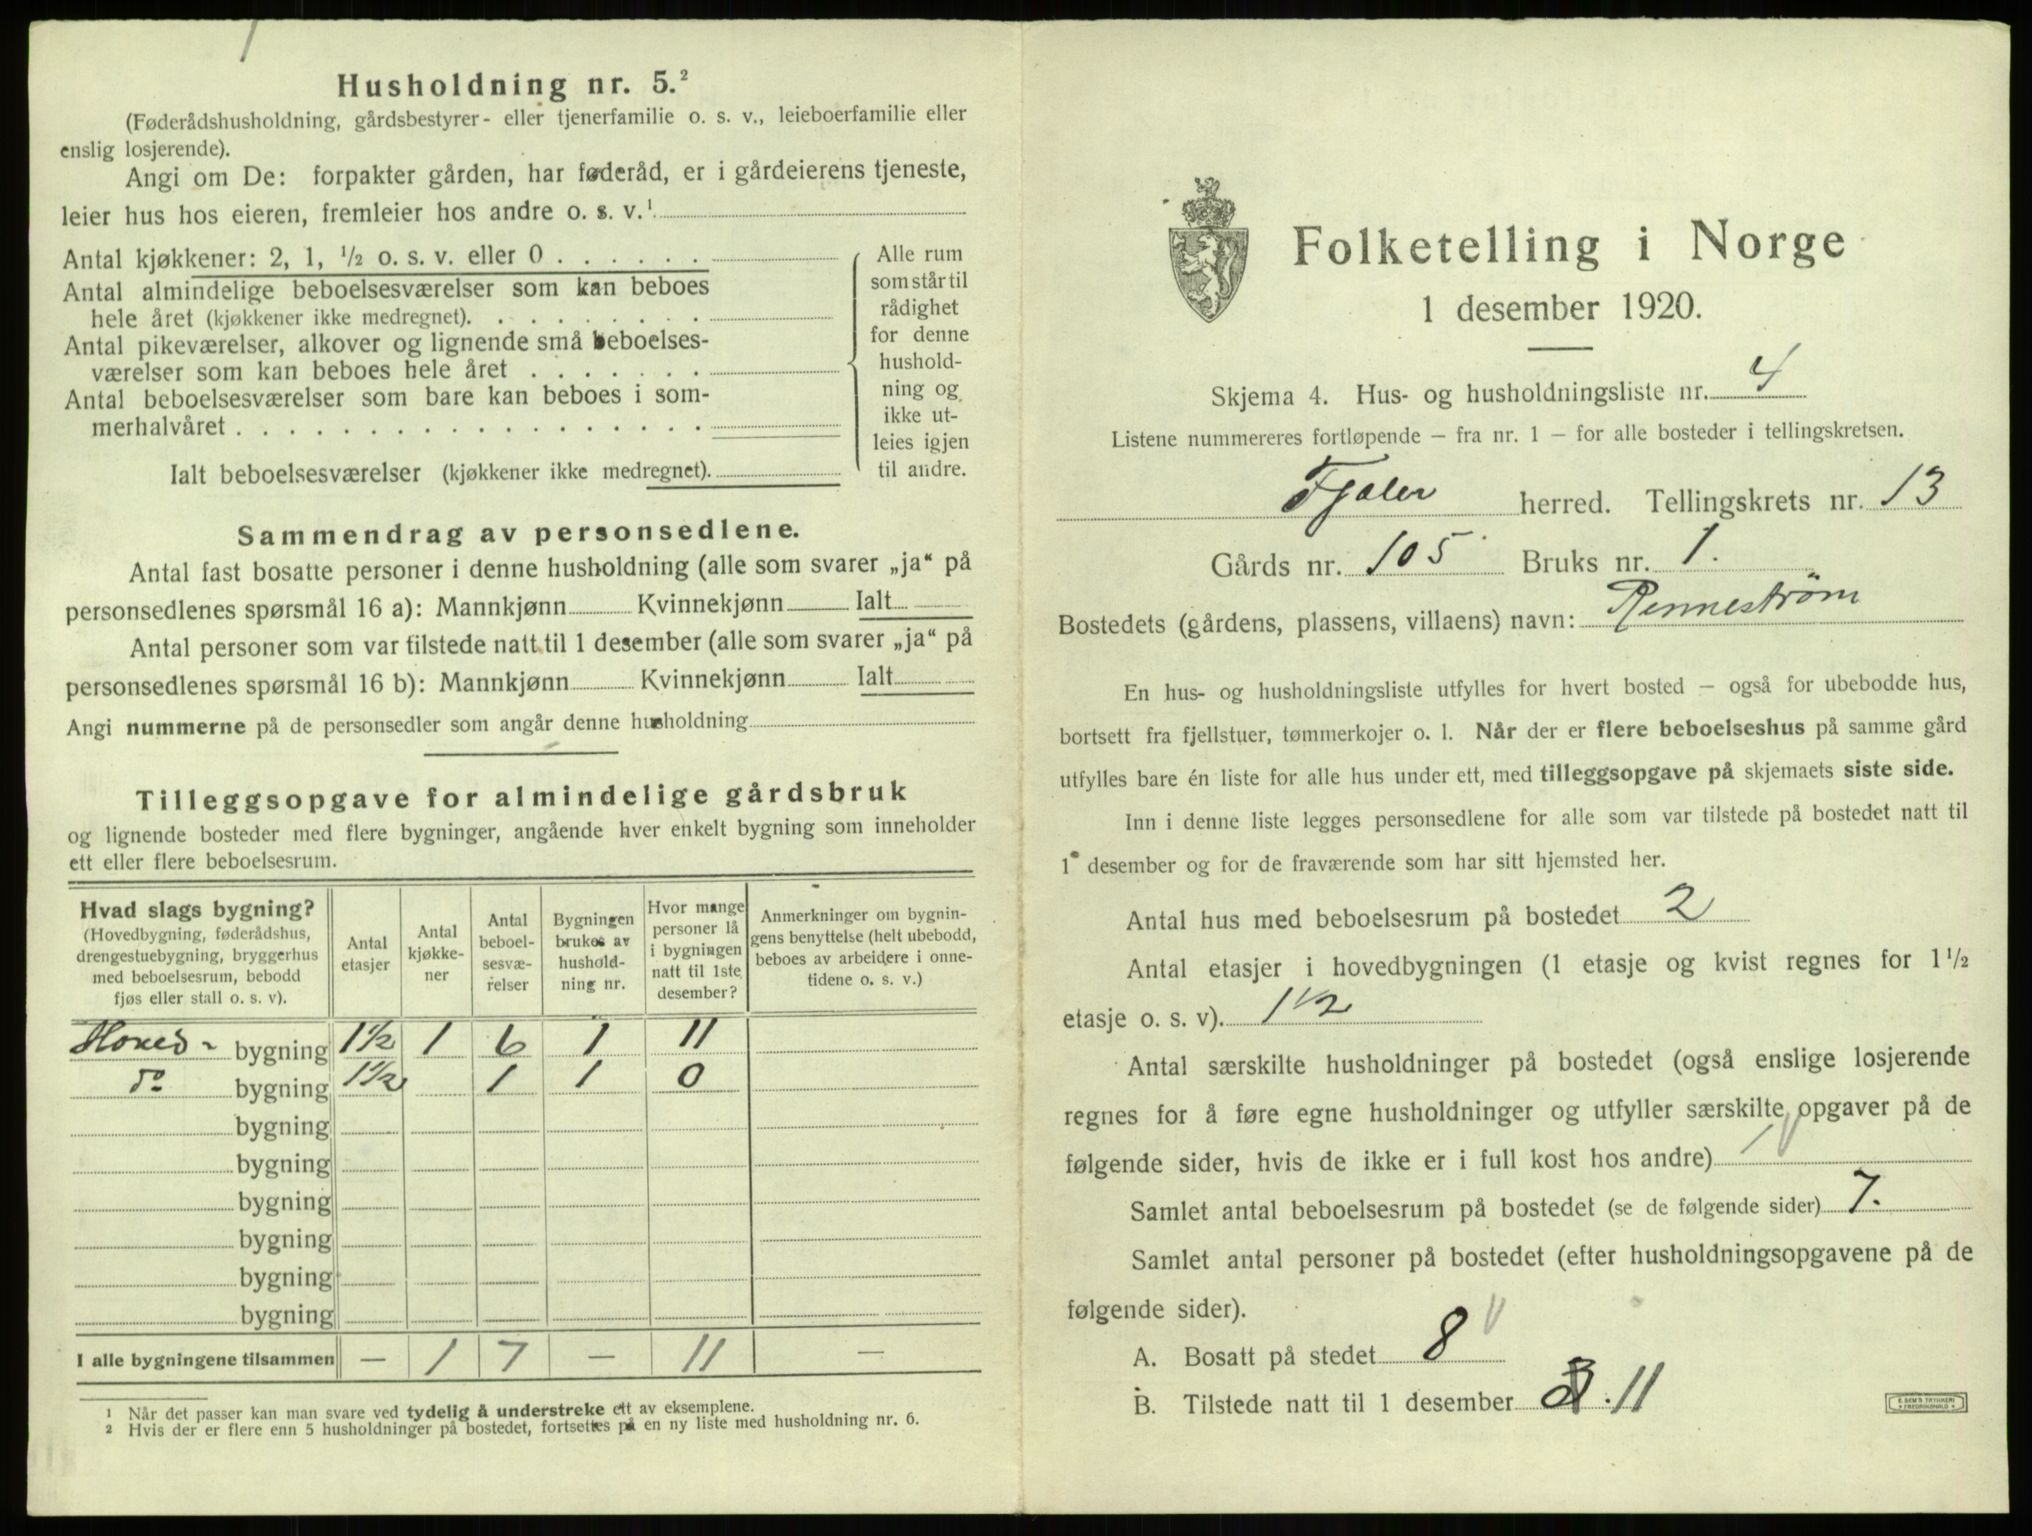 Husholdning nr. 5.²
(Føderådshusholdning, gårdsbestyrer- eller tjenerfamilie o. s. v., leieboerfamilie eller
enslig losjerende).
Angi om De: forpakter gården, har føderåd, er i gårdeierens tjeneste,
leier hus hos eieren, fremleier hos andre o. s. v.¹
Antal kjøkkener: 2, 1, ½ o. s. v. eller 0 . . . . . .
Antal almindelige beboelsesværelser som kan beboes
hele året (kjøkkener ikke medregnet). . . . . . . . .
Antal pikeværelser, alkover og lignende små beboelses-
værelser som kan beboes hele året . . . . . . .
Antal beboelsesværelser som bare kan beboes i som-
merhalvåret . . . . . . . . . . . . . . . . . .
Ialt beboelsesværelser (kjøkkener ikke medregnet).
Alle rum
som står til
rådighet
for denne
hushold-
ning og
ikke ut-
leies igjen
til andre.
Sammendrag av personsedlene.
Antal fast bosatte personer i denne husholdning (alle som svarer „ja“ på
personsedlenes spørsmål 16 a): Mannkjønn Kvinnekjønn Ialt
Antal personer som var tilstede natt til 1 desember (alle som svarer „ja“ på
personsedlenes spørsmål 16 b): Mannkjønn Kvinnekjønn Ialt
Angi nummerne på de personsedler som angår denne husholdning
Tilleggsopgave for almindelige gårdsbruk
og lignende bosteder med flere bygninger, angående hver enkelt bygning som inneholder
ett eller flere beboelsesrum.
Hvad slags bygning?
(Hovedbygning, føderådshus,
drengestuebygning, bryggerhus
med beboelsesrum, bebodd
fjøs eller stall o. s. v).
Antal
etasjer
Antal
kjøkke-
ner
Antal
beboel-
sesvæ-
relser
Bygningen
brukes av
hushold-
ning nr.
Hvor mange
personer lå
i bygningen
natt til 1ste
desember?
Anmerkninger om bygnin-
gens benyttelse (helt ubebodd,
beboes av arbeidere i onne-
tidene o. s. v.)
Hoved- bygning 1½ 1 6 1 11
do bygning 1½ 1 1 0
bygning
bygning
bygning
bygning
bygning
bygning
I alle bygningene tilsammen — 1 7 — 11 —
¹ Når det passer kan man svare ved tydelig å understreke ett av eksemplene.
² Hvis der er flere enn 5 husholdninger på bostedet, fortsettes på en ny liste med husholdning nr. 6.
Folketelling i Norge
1 desember 1920.
Skjema 4. Hus- og husholdningsliste nr. 4
Listene nummereres fortløpende – fra nr. 1 – for alle bosteder i tellingskretsen.
Fjaler herred. Tellingskrets nr. 13
Gårds nr. 105 Bruks nr. 1.
Bostedets (gårdens, plassens, villaens) navn: Rennestrøm
En hus- og husholdningsliste utfylles for hvert bosted – også for ubebodde hus,
bortsett fra fjellstuer, tømmerkojer o. l. Når der er flere beboelseshus på samme gård
utfylles bare én liste for alle hus under ett, med tilleggsopgave på skjemaets siste side.
Inn i denne liste legges personsedlene for alle som var tilstede på bostedet natt til
1 desember og for de fraværende som har sitt hjemsted her.
Antal hus med beboelsesrum på bostedet 2
Antal etasjer i hovedbygningen (1 etasje og kvist regnes for 1½
etasje o. s. v). 1½
Antal særskilte husholdninger på bostedet (også enslige losjerende
regnes for å føre egne husholdninger og utfyller særskilte opgaver på de
følgende sider, hvis de ikke er i full kost hos andre) 1
Samlet antal beboelsesrum på bostedet (se de følgende sider) 7.
Samlet antal personer på bostedet (efter husholdningsopgavene på de
følgende sider).
A. Bosatt på stedet 8
B. Tilstede natt til 1 desember 11